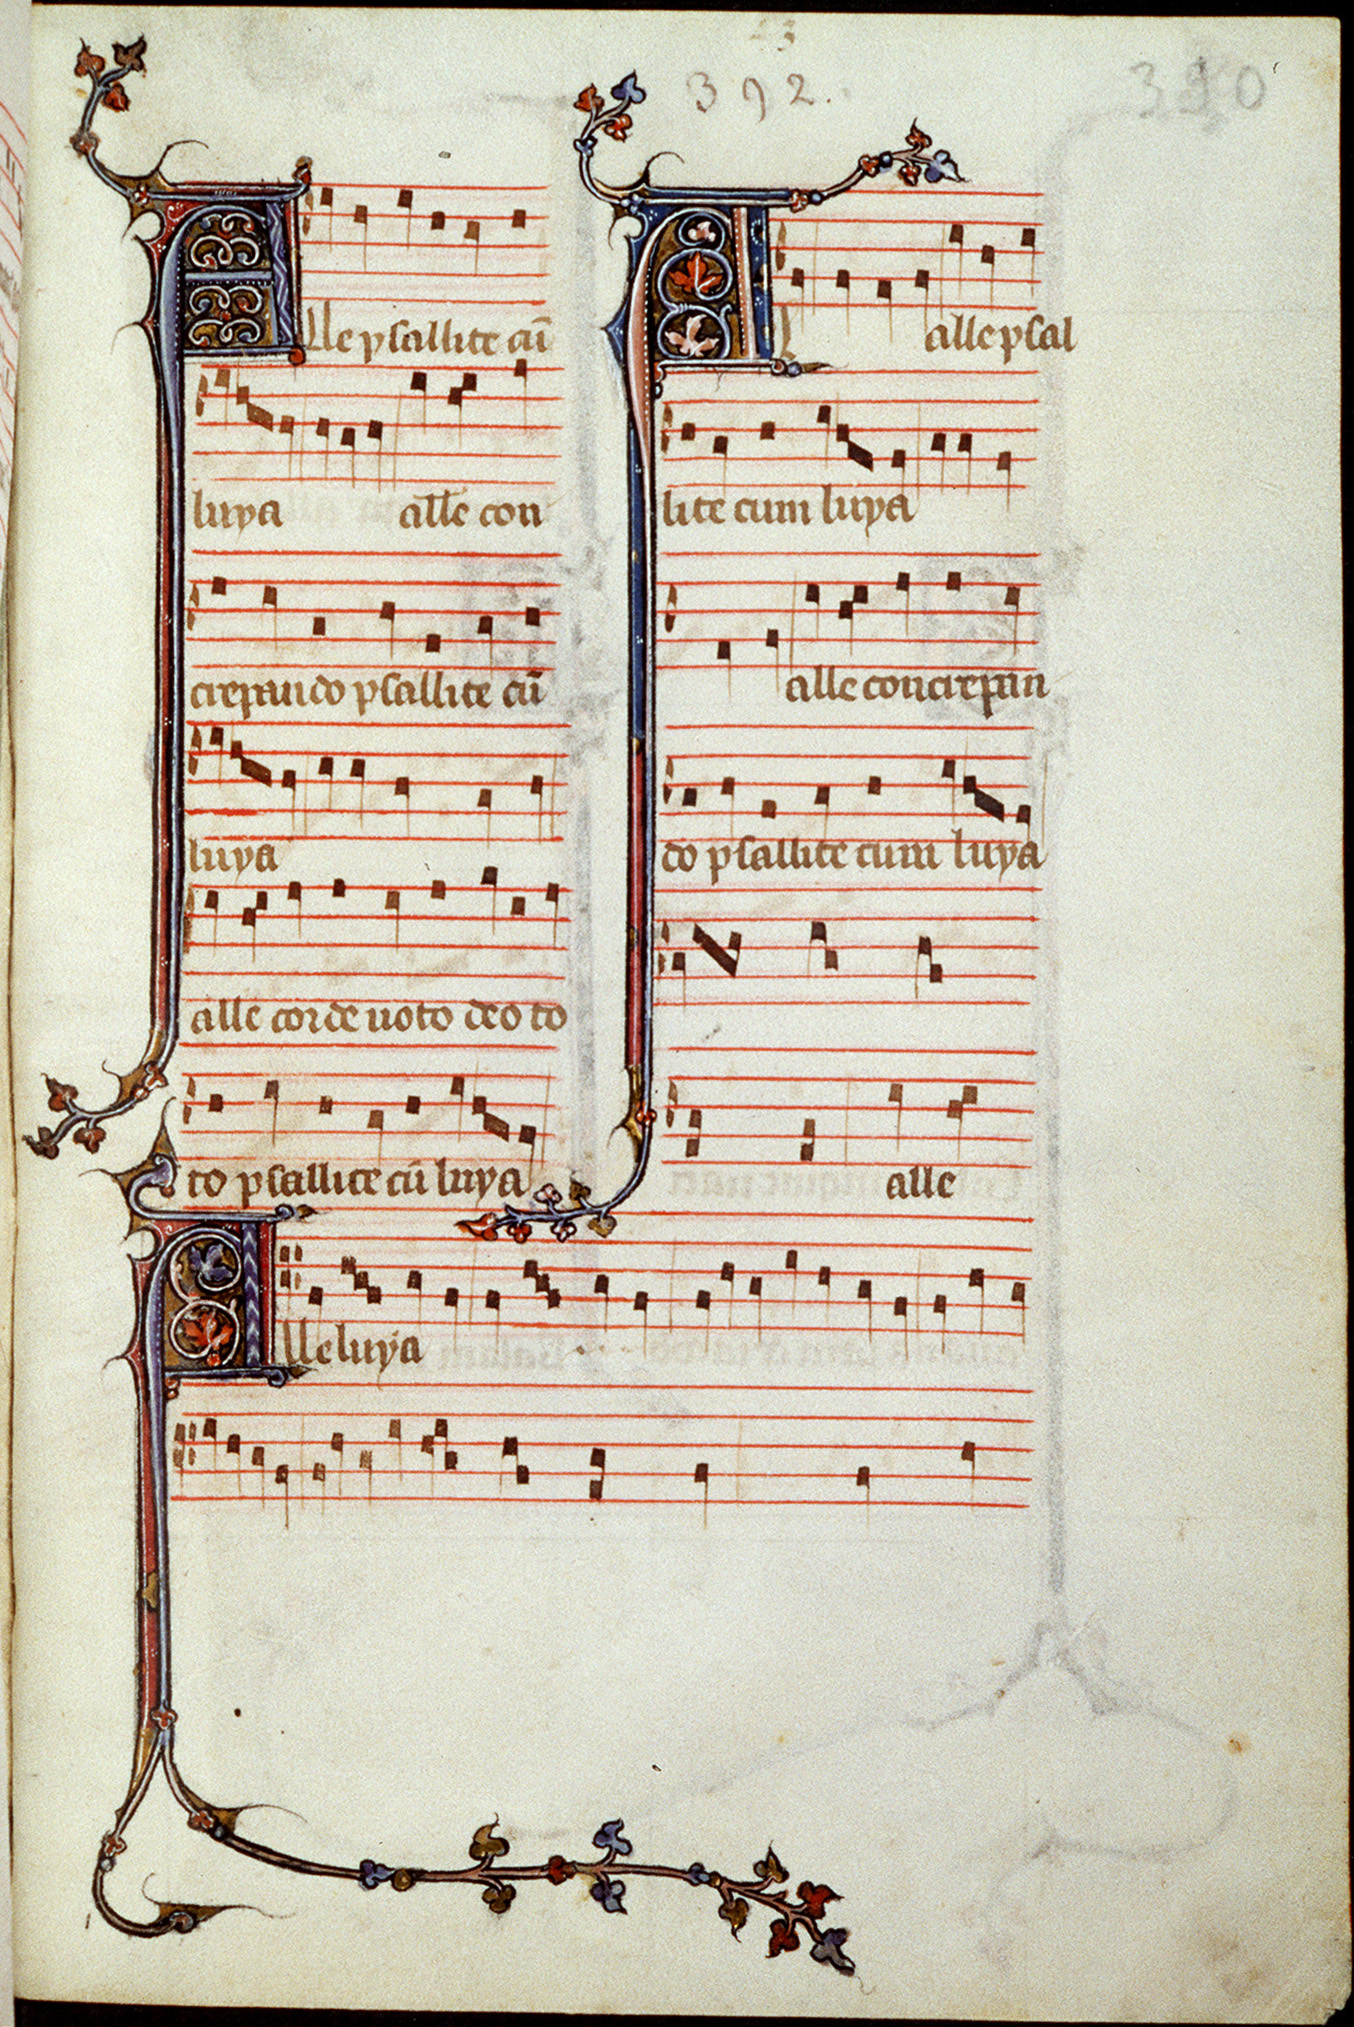 392.
390
Alle psallite cū
luya alle con
crepando psallite cū
luya
alle corde uoto deo to
to psallite cū luya
A alle psal
lite cum luya
alle concrepan
do psallite cum luya
alle
Alleluya